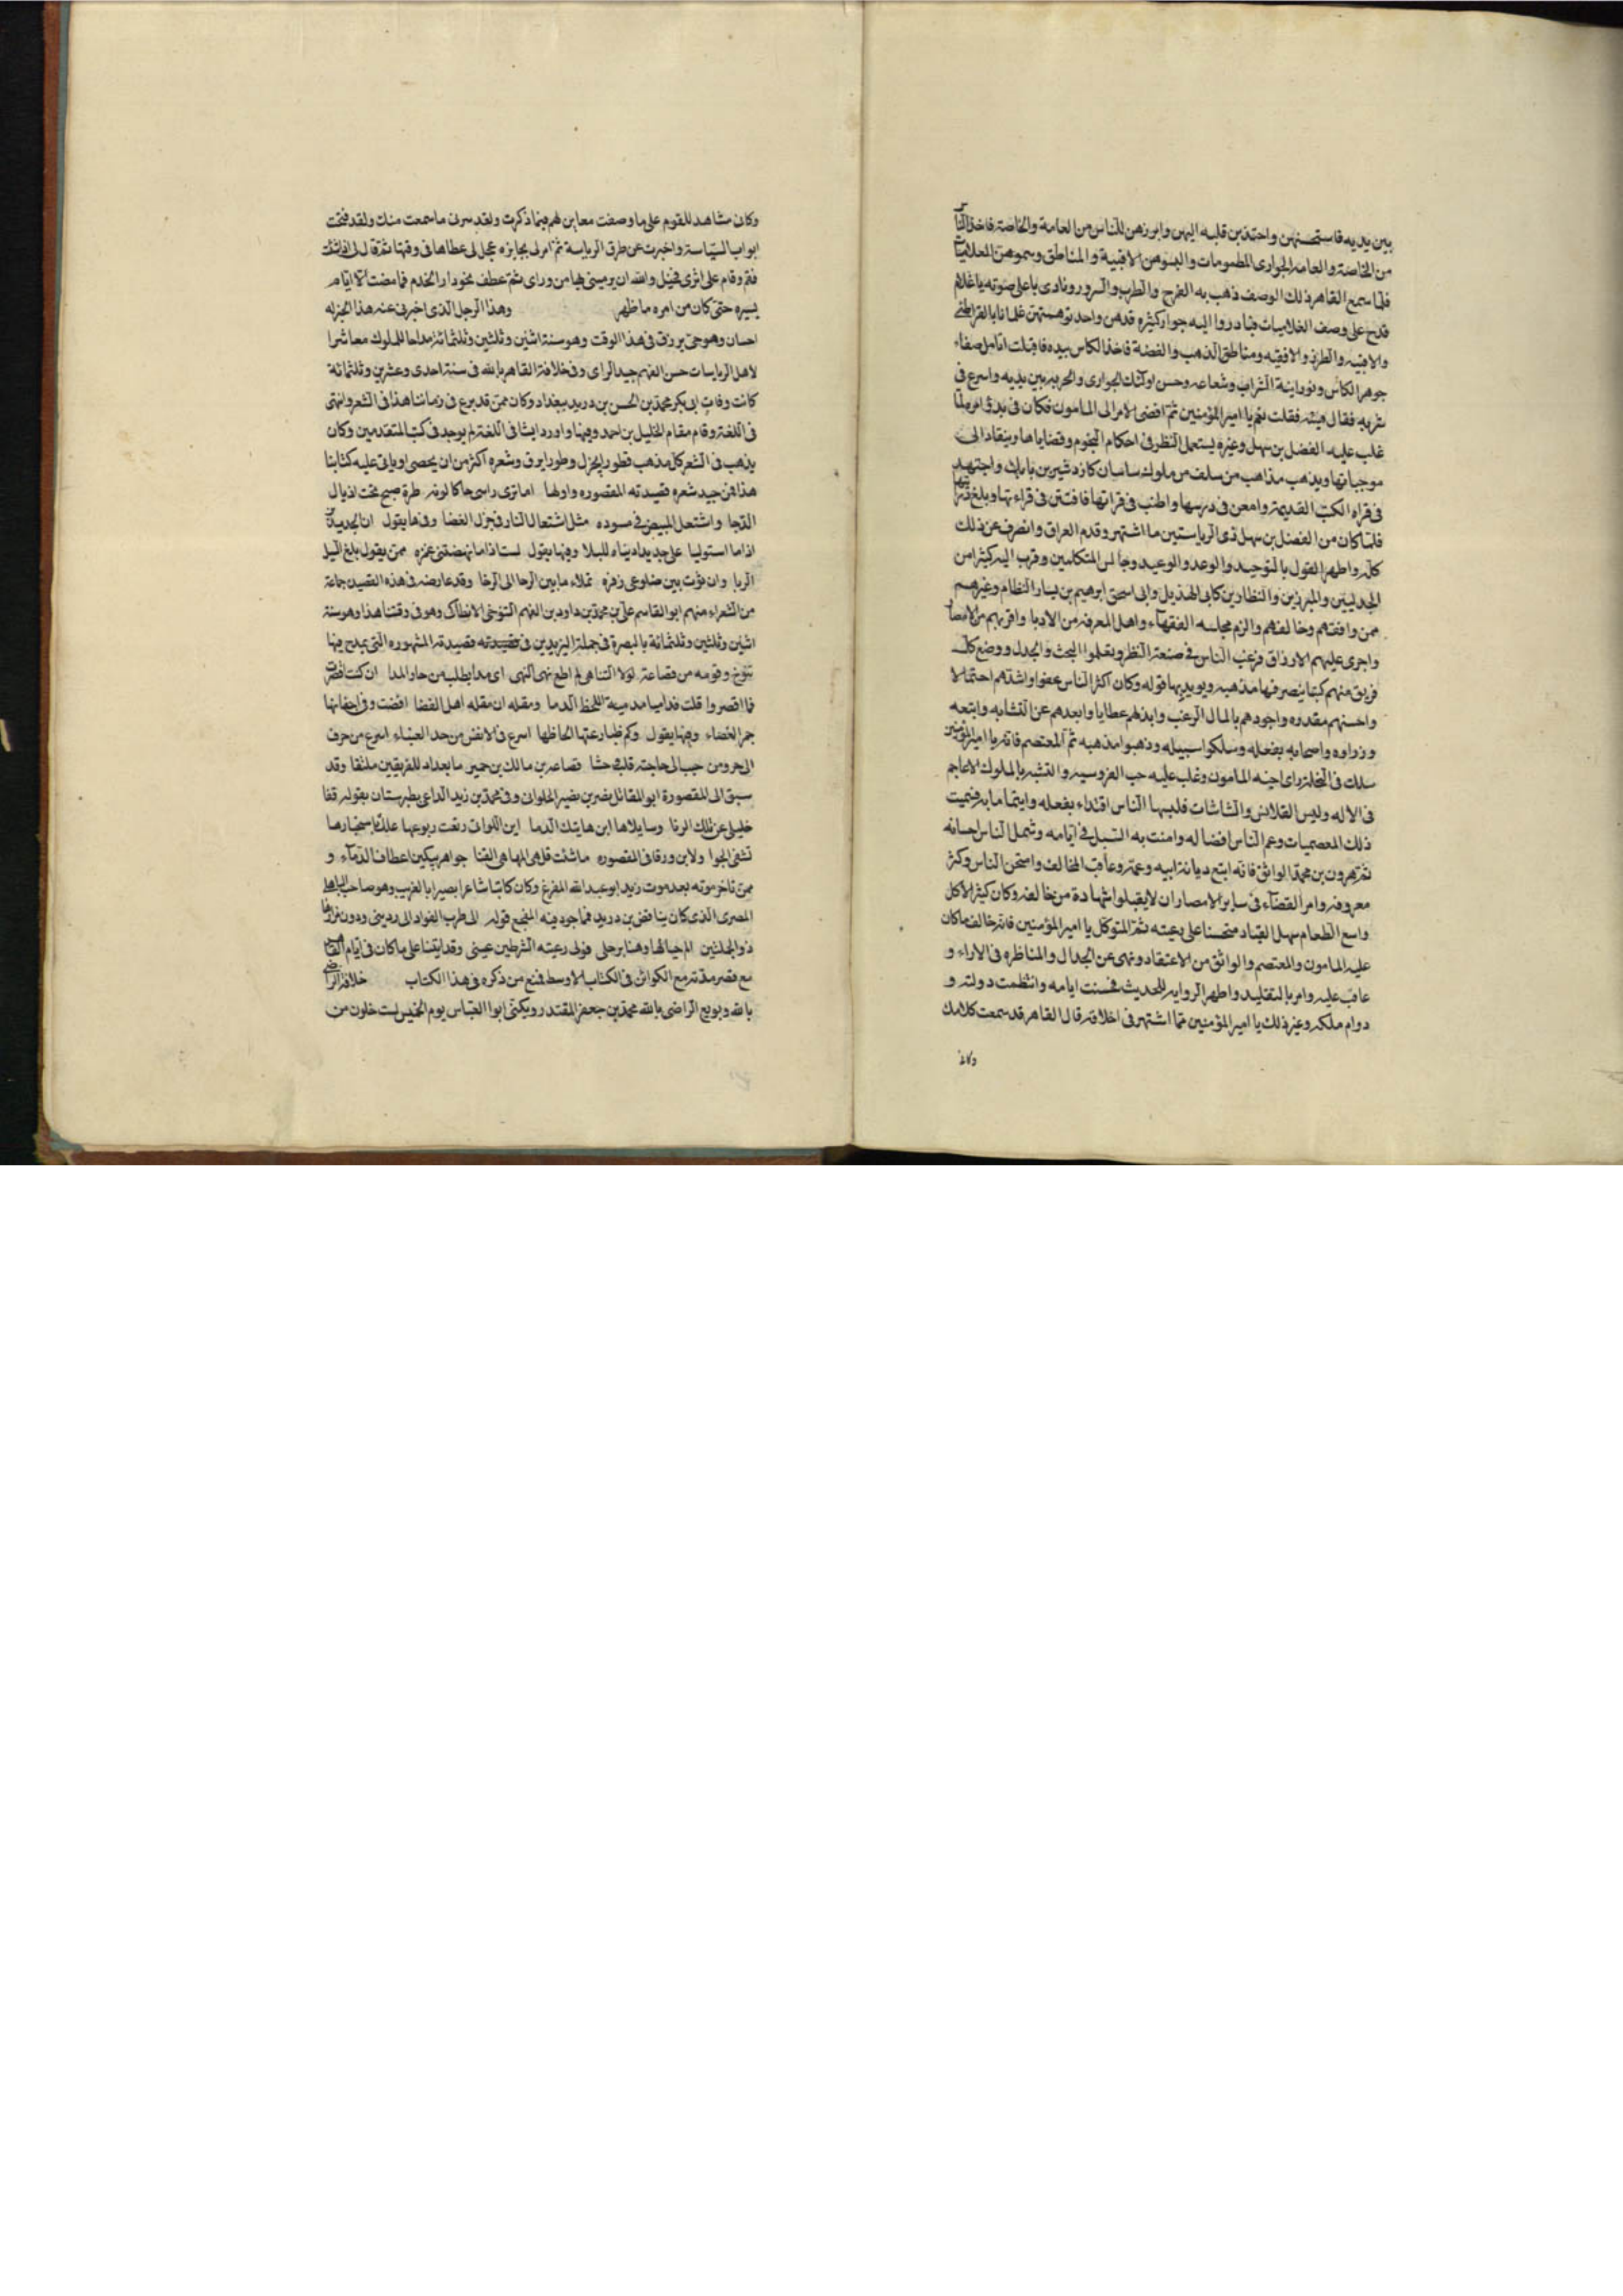 بين يديه فاستحسنهن واجتذبن قلبه اليهن وابرزهن للناس من العامة والخاصة فاخذ الناس
من الخاصة والعامة الجوارى المطمومات والبسوهن الاقبية والمناطق وسموهن الغلاميات
فلما سمع القاهر ذلك الوصف ذهب به الفرح والطرب والسرور ونادى باعلى صوته يا غلام
قدح على وصف الغلاميات فبادروا اليه جوار كثيره قدهن واحد توهمتهن غلمانا بالقراطق
والاقبيه والطرز والاقفيه ومناطق الذهب والفضة فاخذ الكاس بيده فاقبلت اتامل صفاء
جوهر الكاس ونورانية الشراب وشعاعه وحسن اولئك الجوارى والحربه بين يديه واسرع فى
شربه فقال هيه فقلت نعم يا امير المؤمنين ثم افضى الامر الى المامون فكان فى بدؤ امره لما
غلب عليه الفضل بن سهل وغيره يستعمل النظر فى احكام النجوم وقضاياها وينقاد الى
موجباتها ويذهب مذاهب من سلف من ملوك ساسان كازدشير بن بابك واجتهد
فى قراه الكتب القديمة وامعن فى درسها واطنب فى قراتها فافتتن فى قراءتها وبلغ
فلما كان من الفضل بن سهل ذى الرياستين ما اشتهر وقدم العراق وانصرف عن ذلك
كله واظهر القول بالتوحيد والوعد والوعيد وجالس المتكلمين وقرب اليه كثيرا من
الجدليين والمبرزين والنظارين كابى الهذيل وابى اسحق ابرهيم بن يسار النظام وغيرهم
ممن وافقهم وخالفهم والزم مجلسه الفقهاء واهل المعرفة من الادبا واقربهم من الامصار
واجرى عليهم الارزاق فرغب الناس فى صنعة النظر وتعلموا البحث والجدل ووضع كل
فريق منهم كتبا ينصر فيها مذهبه ويويد بها قوله وكان اكثر الناس عفوا واشدهم احتمالا
واحسنهم مقدره واجودهم بالمال الرغيب وابذلهم عطايا وابعدهم عن التشابه واتبعه
وزراوه واصحابه بفعله وسلكوا سبيله وذهبوا مذهبه ثم المعتصم فانه يا امير المؤمنين
سلك فى النحلة راى اخيه المامون وغلب عليه حب الفروسيه والتشبه بالملوك الاعاجم
فى الاله ولبس القلانس والشاشات فلبسها الناس اقتداء بفعله وايتماما به فسميت
ذلك المعصميات وعم الناس افضاله وامنت به السبل فى ايامه وشمل الناس احسانه
ثم هرون بن محمد الواثق فانه اتبع ديانة ابيه وعمه وعاقب المخالف وامتحن الناس وكثر
معروفه وامر القضاء فى ساير الامصار ان لا يقبلوا شهادة من خالفه وكان كثير الاكل
واسع الطعام سهل القياد متحننا على رعيته ثم المتوكل يا امير المؤمنين فانه خالف ما كان
عليه المامون والمعتصم والواثق من الاعتقاد ونهى عن الجدال والمناظره فى الاراء و
عاقب عليه وامر بالتقليد واظهر الروايه للحديث فحسنت ايامه وانتظمت دولته و
دوام ملكه وغير ذلك يا امير المؤمنين مما اشتهر فى اخلاقه قال القاهر قد سمعت كلامك
وكان
وكان مشاهد للقوم على ما وصفت معاين لهم فيما ذكرت ولقد سرنى ما سمعت منك ولقد فتحت
ابواب السياسة واخبرت عن طرق الرياسة ثم امر لى بجايزه عجل لى عطاها فى وقتها ثم قال لى اذا شئت
فقم وقام على اثرى فخيل والله ان يرمينى بها من وراى ثم عطف نحو دار الخدم فما مضت الا ايام
يسيره حتى كان من امره ما ظهر وهذا الرجل الذى اخبرنى عنه هذا الخبر له
احسان وهو حى يرزق فى هذا الوقت وهو سنة اثنين وثلثين وثلثمائة مداحا للملوك معاشرا
لاهل الرياسات حسن الفهم جيد الراى وفى خلافة القاهر بالله فى سنة احدى وعشرين وثلثمائة
كانت وفات ابى بكر محمد بن الحسن بن دريد ببغداد وكان ممن قد برع فى زماننا هذا فى الشعر وانتهى
فى اللغة وقام مقام الخليل بن احمد وفيها واورد ايشا فى اللغة لم يوجد فى كتب المتقدمين وكان
يذهب فى الشعر كل مذهب فطورا يجزل وطورا يرق وشعره اكثر من ان يحصى او ياتى عليه كتابنا
هذا فمن جيد شعره قصيدته المقصوره واولها اما ترى راسى حاكا لونه طرة صبح تحت اذيال
الدجا واشتعل المبيض فى مسوده مثل اشتعال النار فى جزل الغضا وفيها يقول ان الجديدين
اذا ما استوليا على جديد ادنياه للبلا وفيها يقول لست اذا ما نهضتنى غمزه ممن يقول بلغ السيل
الربا وان ثوت بين ضلوعى زفره تملاء ما بين الرحا الى الرجا وقد عارضه فى هذه القصيده جماعة
من الشعراء منهم ابو القاسم على بن محمد بن داود بن الفهم التنوخى الانطاكى وهو فى وقتنا هذا وهو سنة
اثنين وثلثين وثلثمائة بالبصرة فى جملة اليزيديين فى قصيدته قصيدته المشهوره التى يمدح فيها
تنوخ وقومه من قضاعة لولا التناهى لم اطع نهى النهى اى مدا يطلب من جاز المدا ان كنت اقصرت
فما اقصروا قلت فداميا مدمية اللحظ الدما ومقله ان مقله اهل الفضا اغضت وفى اجفانها
جمر الغضاء وفيها يقول وكم ظبا رعتها الحاظها اسرع فى الانفس من حد الظباء اسرع من حرف
الى جر ومن حب الى حاجته قلب حشا قضاعه بن مالك بن حمير ما بعداه للفريقين ملتقا وقد
سبق الى المقصورة ابو المقاتل نصر بن نصير الحلوان وفى محمد بن زيد الداعى بطبرستان بقوله قفا
خليلى عن تلك الربا وسايلاها اين هاتيك الدما اين اللواتى رتعت ربوعها عليك باستخبارها
تشفى الجوا ولابن ورقا فى المقصوره ما شئت قل هى المها هى القنا جواهر يبكين اعطاف الدماء و
ممن تاخر موته بعد موت زيد ابو عبد الله المفرغ وكان كاتبا شاعرا بصيرا بالغريب وهو صاحب الباهلى
المصرى الذى كان يناقض بن دريد فما جود فيه المفجع قوله الى طرب الفواد الى ردينى ودون مزارها
ذو الجلتين
مع قصر مدته مع الكوائن فى الكتاب الاوسط فمنع من ذكره فى هذا الكتاب خلافة الراضى
بالله وبويع الراضى بالله محمد بن جعفر المقتدر ويكنى ابوا العباس يوم الخميس لست خلون من